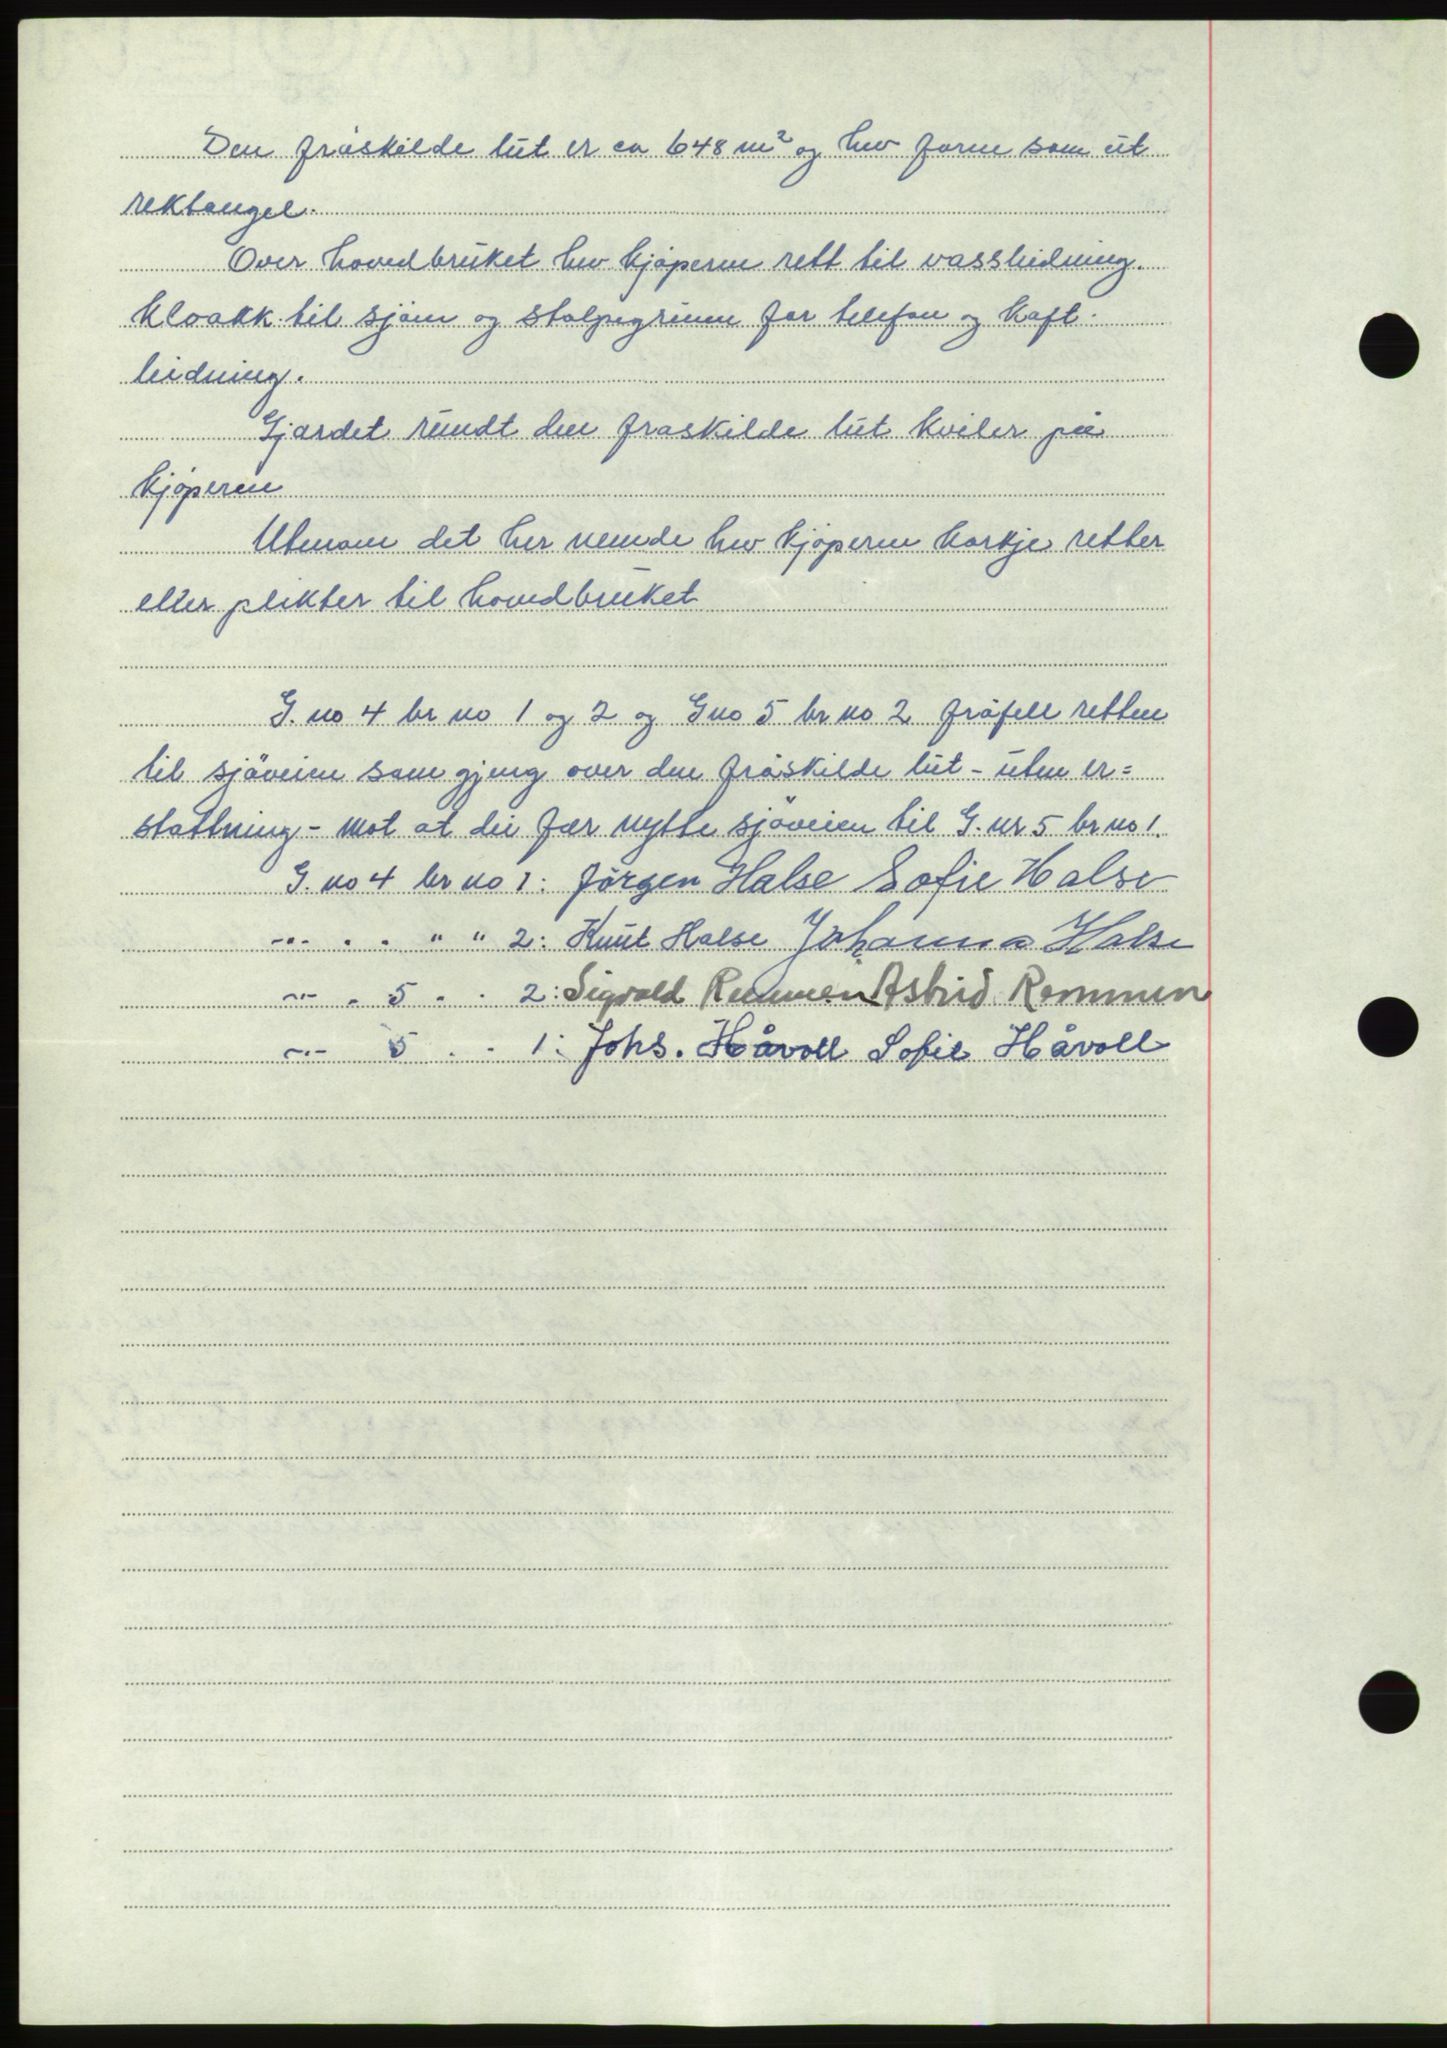 Den fråskilde lut er ca 648 m² og hev form som eit
rektangel.
Over hovedbruket hev kjøperen rett til vassleidning.
kloakk til sjøen og stolpegrunn for telefon og kaft-
leidning.
Gjærdet rundt den fraskilde lut kviler på
kjøperen
Utenom det her nemde hev kjøperen korkje retter
eller plikter til hovedbruket
G. no 4 br no 1 og 2 og Gno 5 br no 2 fråfell retten
til sjøveien som gjeng over den fråskilde lut - uten er=
stattning - mot at dei fær nytte sjøveien til G. nr 5 br no 1.
G. no 4 br no 1: Jørgen Halse Sofie Halse
-"- . . " " 2: Knut Halse Johanna Halse
-"- . 5 . . 2: Sigvald Remmen Astrid Remmen
-"- 5 . . 1: Johs. Håvoll Sofie Håvoll